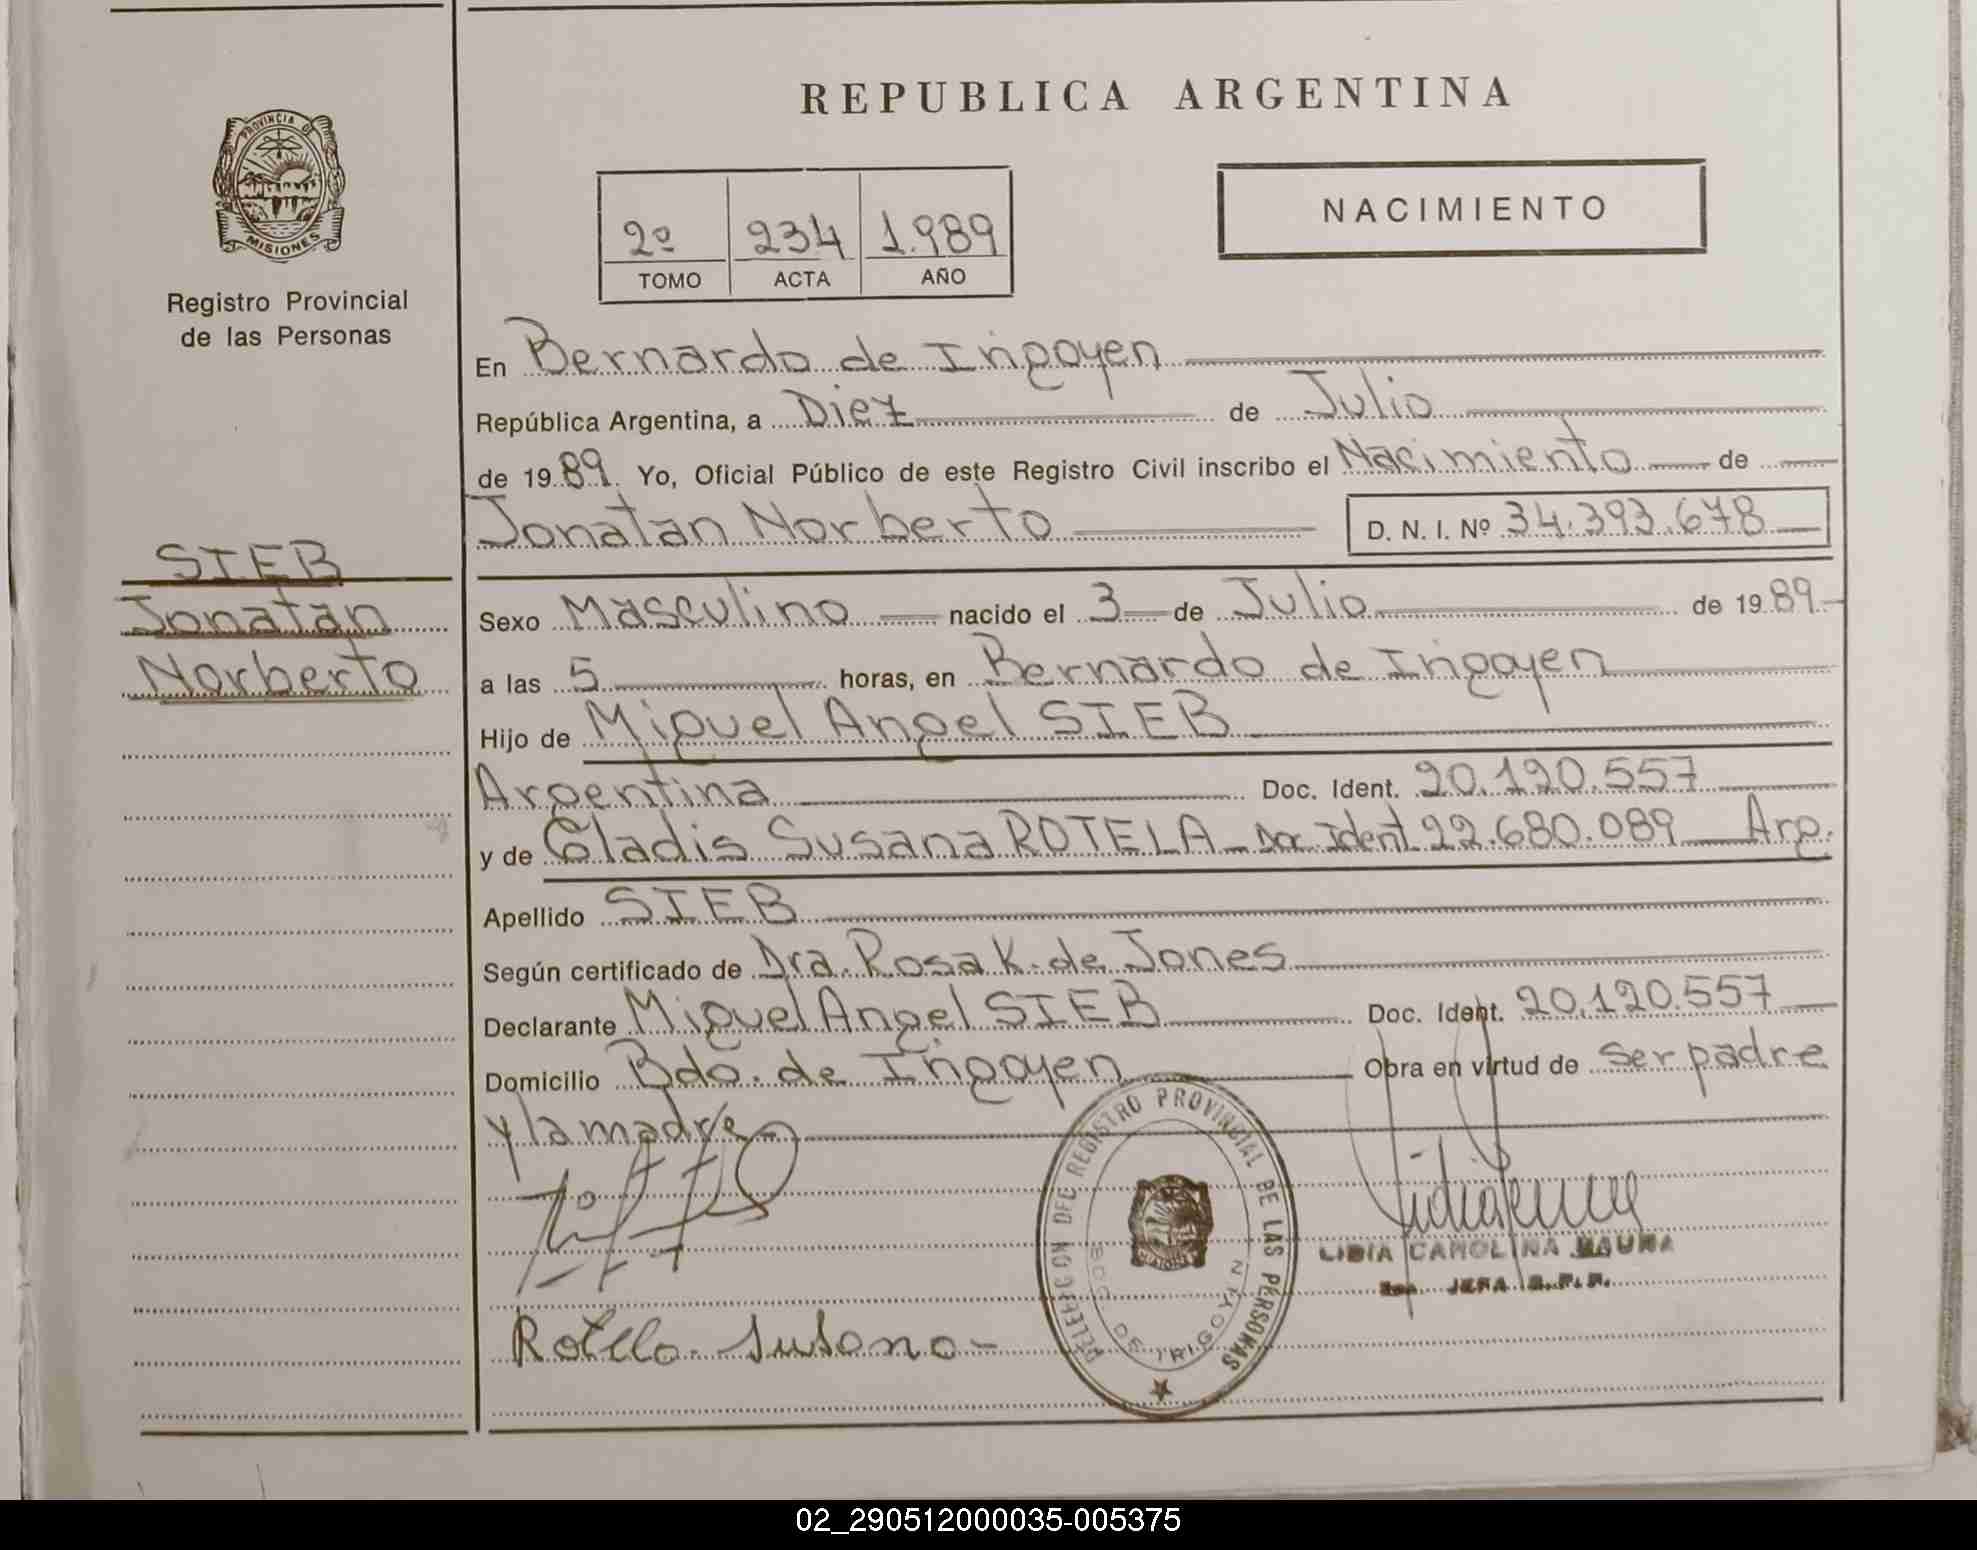 REPUBLICA ARGENTINA
PROVINCIA DE
MISIONES
Registro Provincial
de las Personas
NACIMIENTO
2º 234 1.989
TOMO ACTA AÑO
En Bernardo de Irigoyen
República Argentina, a Diez de Julio
de 1989. Yo, Oficial Público de este Registro Civil inscribo el Nacimiento de
Jonatan Norberto D. N. I. Nº 34.393.678
SIEB
Jonatan
Norberto
Sexo Masculino nacido el 3 de Julio de 1989
a las 5 horas, en Bernardo de Irigoyen
Hijo de Miguel Angel SIEB
Argentina Doc. Ident. 20.120.557
y de Gladis Susana ROTELA Doc Ident 22.680.089 Arg.
Apellido SIEB
Según certificado de Dra. Rosa K. de Jones
Declarante Miguel Angel SIEB Doc. Ident. 20.120.557
Domicilio Bdo. de Irigoyen Obra en virtud de ser padre
y la madre
DELEGACION DEL REGISTRO PROVINCIAL DE LAS PERSONAS
BDO DE IRIGOYEN
LIDIA CAROLINA
JEFA R.P.P.
Rotela Susana
02_290512000035-005375